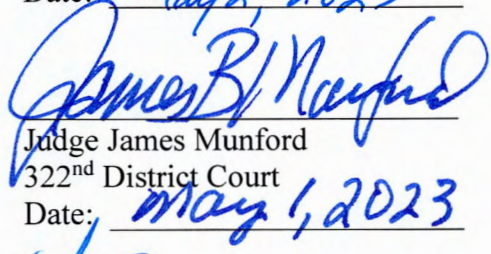 Date: May 2, 2023
James B Munford
Judge James Munford
322nd District Court
Date: May 1, 2023